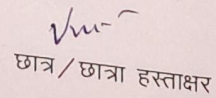 छात्र / छात्रा हस्ताक्षर